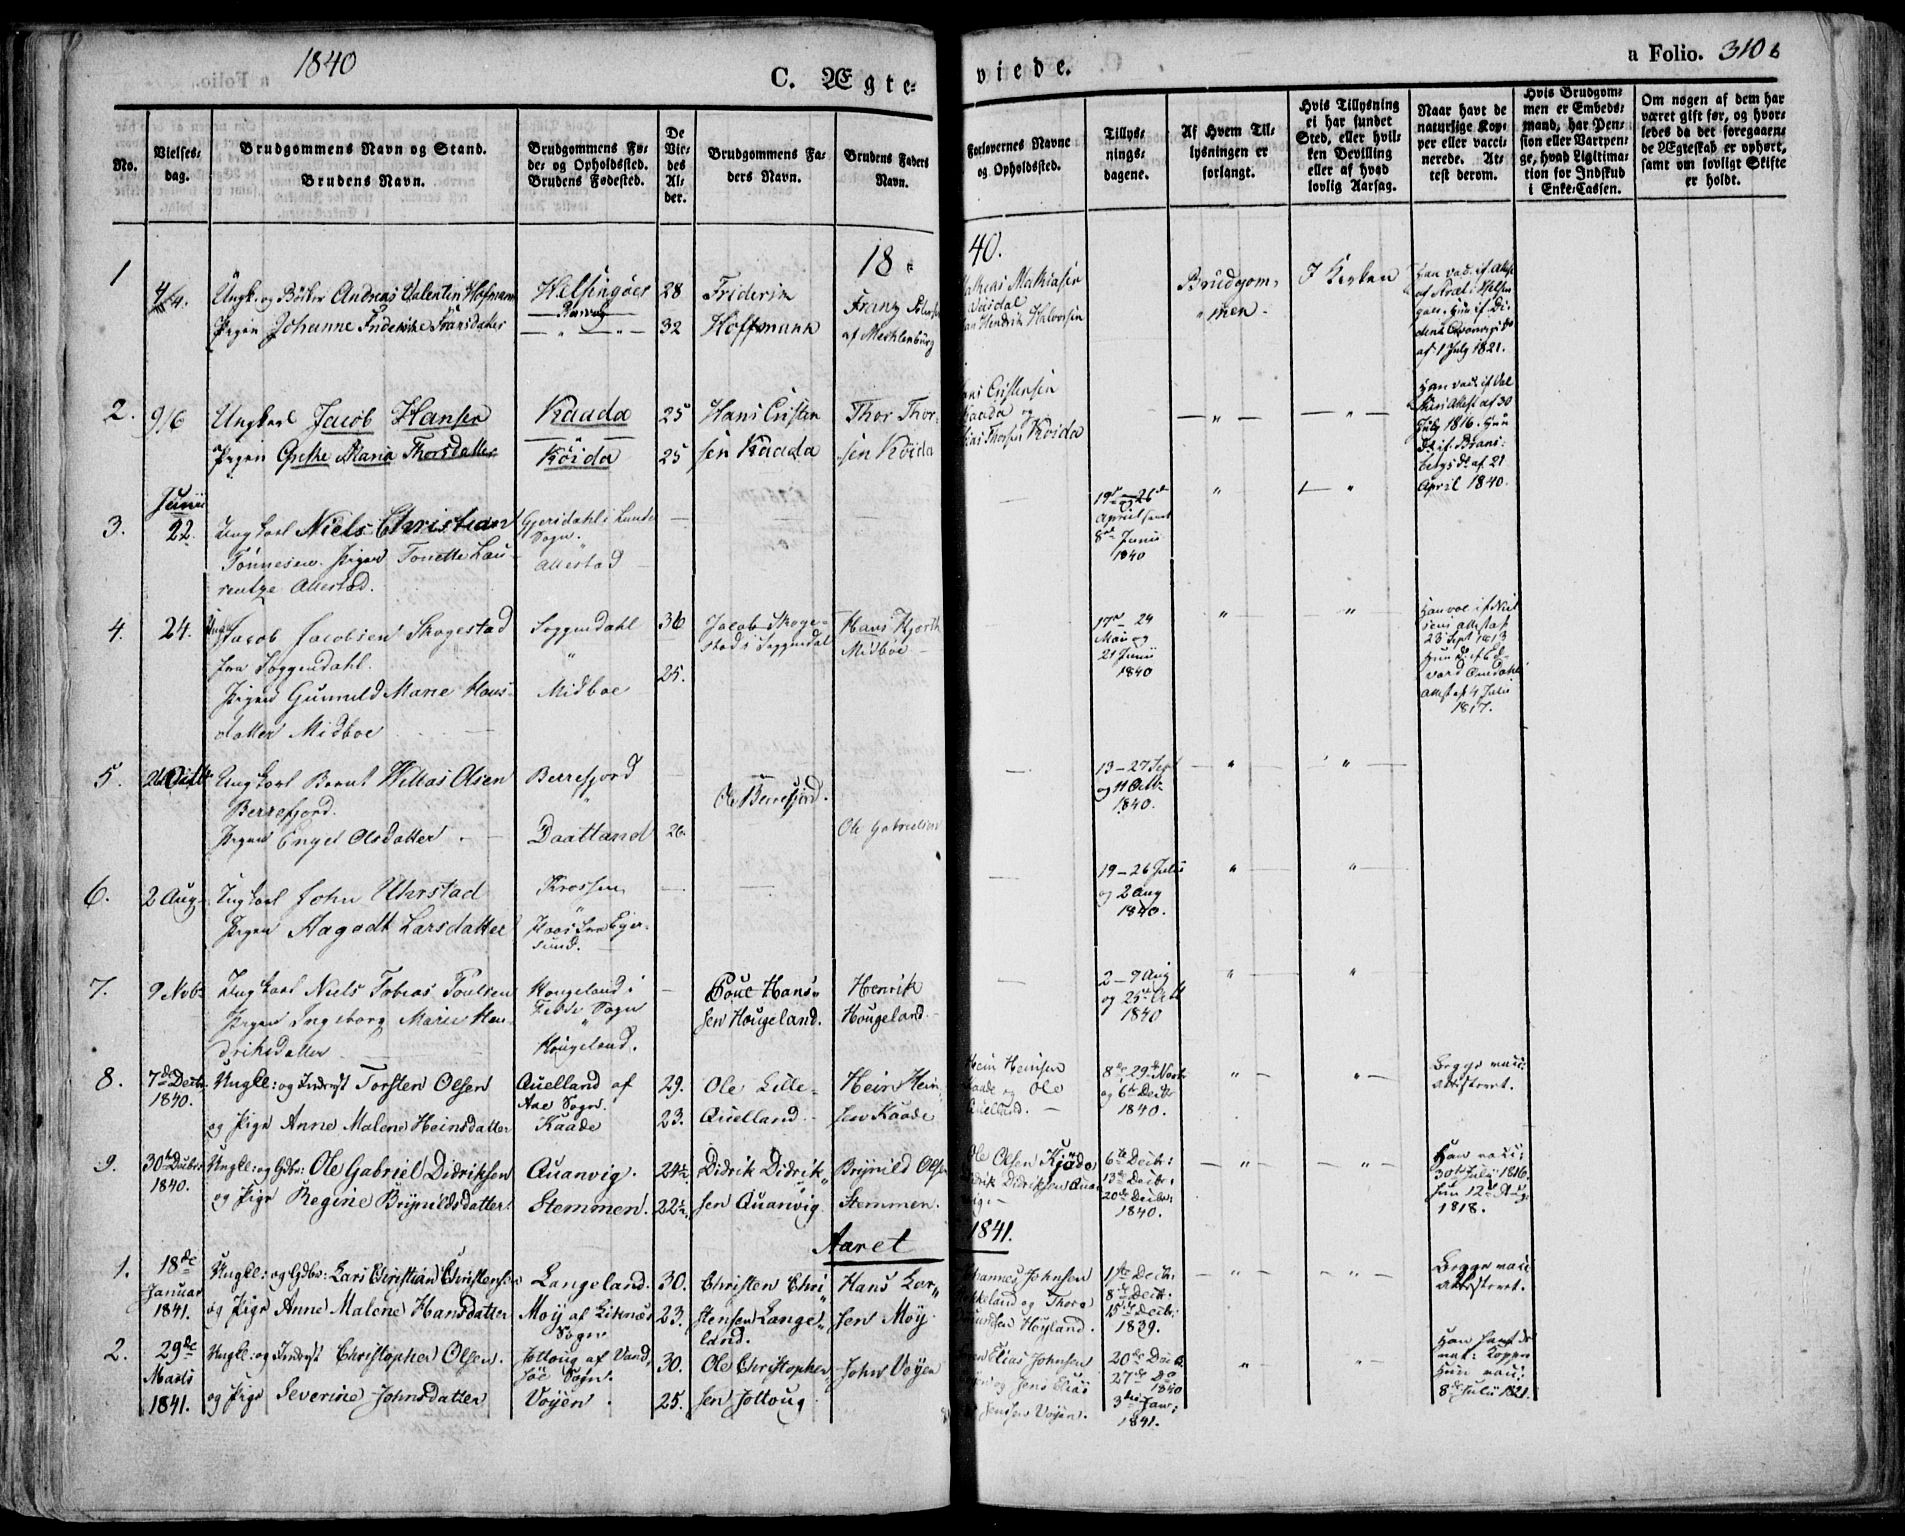 1840
C. Ægte-
viede.
a Folio. 310 b
No.
Vielses-
dag.
Brudgommens Navn og Stand.
Brudens Navn.
Brudgommens Fø-
de- og Opholdssted.
Brudens Fødested.
De
Vie-
des
Al-
der.
Brudgommens Fa-
ders Navn.
Brudens Faders
Navn.
Forlovernes Navne
og Opholdssted.
Tillys-
nings-
dagene.
Af Hvem Til-
lysningen er
forlangt.
Hvis Tillysning
ei har fundet
Sted, eller hvil-
ken Bevilling
eller af hvad
lovlig Aarsag.
Naar havt de
naturlige Kop-
per eller vacci-
nerede. At-
test derom.
Hvis Brudgom-
men er Embeds-
mand, har Pen-
sion eller Vartpen-
ge, hvad Ligitima-
tion for Indskud
i Enke-Cassen.
Om nogen af dem har
været gift før, og hvor-
ledes da det foregaaen-
de Ægteskab er ophørt,
samt om lovligt Skifte
er holdt.
18
40.
1
4/4.
Ungk. og Andreas Valentin Hofmann
Pigen Johanne Fransdatter
Helsingøer
28
32
Friderik
Hoffmann
Franz
af Mecklenburg
Mathias Mathiasen
Hendrik Halvorsen
Brudgom-
men.
I Kirken
af 1 July 1821.
2.
9/6
Ungkarl Jacob Hansen
Pigen Grethe Maria Thorsdatter
Kaada
Køida
25
25
Hans Cristen
sen Kaada
Thor Thor-
sen Køida
Cristensen
Kaada og
Thorsen Køida
Han vac: if
Attest af 30
July 1816. Hun
af 21
April 1840.
3.
Junii
22.
Ungkarl Niels Christian
Tønnesen. Pigen Tonette Lau-
rentze Allestad.
Gjersdahl i Lunde
Sogn.
Allestad
19de – 26de
April samt
8de Junii
1840
4.
24.
Ungk: Jacob Jacobsen Skogestad
fra Soggendahl.
Pigen Gunnild Marie Hans-
datter Midboe
Soggendahl
Midboe
36
25.
Jacob Skoge-
stad i Soggendal
Hans Hjorth
Midboe
17de – 24
Mai og
21 Junii
1840
Han vac if Niel
sens attest af
23 Sept 1813
Hun do if Ed-
vard Omdahls
Attest af 4 Julii
1817.
5.
26 Octb
Ungkarl Bernt Willas Olsen
Berrefjord.
Pigen Engel Olsdatter
Berrefjord
Daatland
26.
Ole Berrefjord.
Ole Gabrielsen
13 – 27 Sept
og 11 Octb:
1840.
6.
2 Aug
Ungkarl John Uhrstad
Pigen Aagodt Larsdatter
Krossen
Haas fra Eger-
sund.
19 – 26 Julii
og 2 Aug
1840.
7.
9 Nob:
Ungkarl Niels Tobias Poulsen
Pigen Ingeborg Marie Hen-
driksdatter
Hougeland i
Fede Sogn
Hougeland.
Poul Han-
sen Hougeland.
Henrik
Hougeland.
2 – 9 Aug
og 25de Octb
1840
8.
7de Decbr
1840.
Ungkl: og Inderst Torsten Olsen
og Pige Anne Malene Heinsdatter
Quelland af
Aae Sogn.
Kaade
29.
23.
Ole Lille-
Quelland.
Hein Hein-
sen Kaade
Hein Heinsen
Kaade og Ole
Quelland.
8de 29de Novbr
og 6te Decbr
1840.
Begge vacc:
attesteret.
9.
30te Decbr
1840.
Ungkl: og Gdbr: Ole Gabriel Didriksen
og Pige Regine Brynildsdatter.
Quanvig.
Stemmen.
24½
22½
Didrik Didrik-
sen Quanvig
Brynild Olsen
Stemmen.
Ole Olsen Kjøde
Didrik Didriksen Quan
vig.
6te Decbr:
13de Decbr:
20de Decbr:
1840.
Han vacc:
30te July 1816.
hun 12te Aug:
1818.
Aaret
1841.
1.
18de
Januar
1841.
Ungkl: og Gdbr: Lars Christian Christensen
og Pige Anne Malene Hansdatter
Langeland.
Moy af Liknæs
Sogn
30.
23.
Christen Chri-
stensen Lange-
land.
Hans Lar-
sen Moy.
Johannes Johnsen
og Thore
Høyland.
1ste Decbr:
8de Decbr:
15de Decbr:
1839.
Begge vacc:
attesteret.
2.
29de
Marts
1841.
Ungkl: og Inderst Christopher Olsen.
og Pige Severine Johnsdatter
Jottoug af Vand-
søe Sogn.
Vøyen
30.
25.
Ole Christopher-
sen Jottoug
John Vøyen
Elias Johnsen
Vøyen og Jens Elias
Jensen Vøyen.
20de Decb.
27de Do
1840
3die Jan:
1841.
Han havt de
nat: Kopper
Hun vacc:
8de Julii 1821.